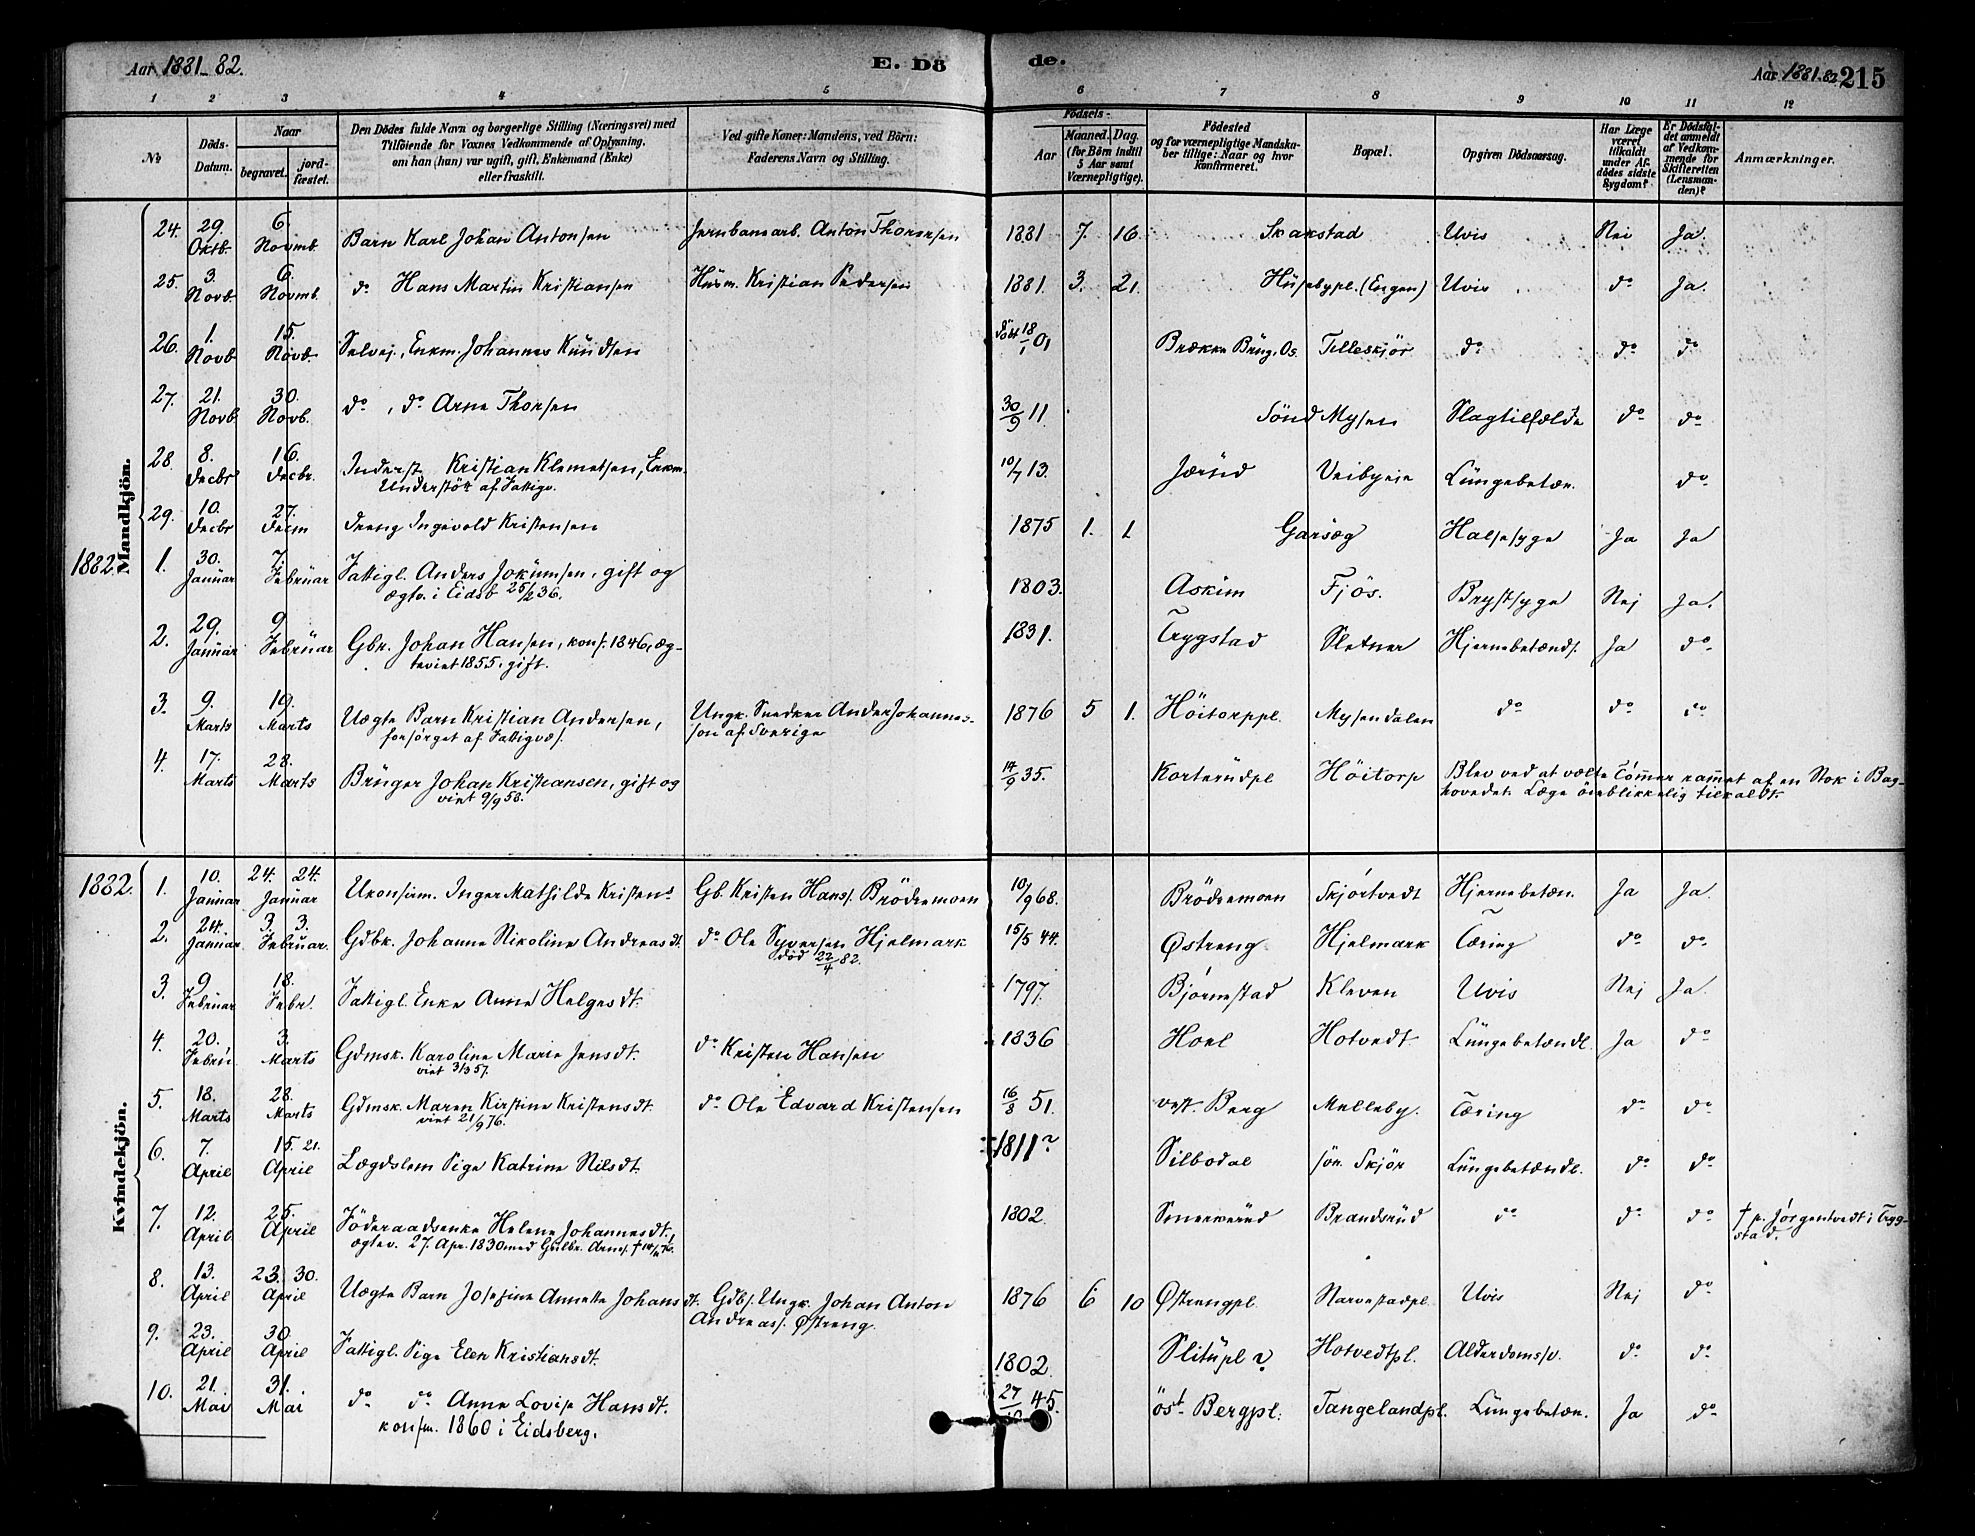 Aar 1881-82. E. Dö de. Aar 1881-82 215
1 2 3 4 5 6 7 8 9 10 11 12
No
Döds-Datum.
Naar begravet. jord-fæstet.
Den Dödes fulde Navn og borgerlige Stilling (Næringsvei) med
Tilföiende for Voxnes Vedkommende af Oplysning,
om han (hun) var ugift, gift, Enkemand (Enke)
eller fraskilt.
Ved gifte Koner: Mandens, ved Börn:
Faderens Navn og Stilling.
Födsels-
Aar
Maaned. Dag.
(for Börn indtil
5 Aar samt
Værnepligtige).
Födested
og for værnepligtige Mandska-
ber tillige: Naar og hvor
konfirmeret.
Bopæl.
Opgiven Dödsaarsag.
Har Læge
været
tilkaldt
under Af-
dödes sidste
Sygdom?
Er Dödsfal-
det anmeldt
af Vedkom-
mende for
Skifteretten
(Lensman-
den)?
Anmærkninger.
Mandkjön.
24. 29. Oktb. 6. Novmb. Barn Karl Johan Antonsen Jernbanearb. Anton Thoresen 1881 7. 16. Skakstad Uvis Nei Ja.
25. 3. Novb. 6. Novmb. do Hans Martin Kristiansen Husm. Kristian Pedersen 1881. 3. 21. Hüsebypl. (Engen) Uvis do Ja.
26. 1. Novb 15. Novb. Selvej., Enkm. Johannes Knüdsen döbt 18/1 01 Brække Brüg, Os. Tilleskjör do do do
27. 21. Novb 30. Novb. do, do Arne Thorsen 30/9 11. Sönd Mysen Slagtilfælde do do
28. 8. Decbr 16. Decbr. Inderst Kristian Klemetsen, Enkm.
Understöt. af Fattigv. 10/7 13. Jærüd Veibyeie Lüngebetæn. do
29. 10. Decbr 27. Decm Dreng Ingevold Kristensen 1875 1. 1 Garseg Halssyge Ja Ja
1882. 1. 30. Janüar 7. Febrüar Fattigl. Anders Joküimsen, gift og
ægtev. i Eidsb 25/2 36. 1803. Askim Fjös. Brystsyge Nej Ja.
2. 29. Janüar 9 Febrüar Gbr. Johan Hansen, konf. 1846, æg-
teviet 1855, gift. 1831. Trygstad Sletner Hjernebetænds. Ja do
3. 9. Marts 19. Marts Uægte Barn Kristian Andersen,
forsörget af Fattigvæs. Ungk. Snedker Ander Johannes-
son af Sverige 1876 5 1. Höitorppl. Mysendalen do do do
4. 17. Marts 28. Marts Brüger Johan Kristiansen, gift og
viet 9/9 58. 14/9 35. Korterüdpl Höitorp Blev ved at vælte Tömmer ramet af en Stok i Bag-
hovedet. Læge öieblikkelig tilkaldt.
Kvindekjön.
1882. 1. 10. Janüar 24. 24. Janüar Ukonfirm. Inger Mathilde Kristens Gb. Kristen Hans. Brödremoen 10/9 68. Brödremoen Skjörtvedt Hjernebetæn. Ja Ja.
2. 24. Janüar 3. 3. Febrüar. Gdbk. Johanne Nikoline Andreasdt. do Ole Syversen Hjelmark
död 22/4 82. 15/5 44. Østreng Hjelmark Tæring do do
3. 9 Febrüar 18. Febr. Fattigl. Enke Anne Helgesdt. 1797. Bjørnestad Kleven Uvis Nej Ja.
4. 20. Febrü. 3. Marts Gdmsk. Karoline Marie Jensdt.
viet 3/3 57. do Kristen Hansen 1836 Hoel Hotvedt Lüngebetændl. Ja do
5. 18. Marts 28. Marts Gdmsk. Maren Kirstine Kristensdt.
viet 21/9 76. do Ole Edvard Kristensen 16/3 51. vest. Berg Melleby. Tæring do do
6. 7. April 15. 21. April Lægdslem Pige Katrine Nilsdt. 1811? Silbodal sön. Skjör Lüngebetændl. do do
7. 12. April 25. April Föderaadsenke Helene Johannesdt.,
ægtev. 27. Apr. 1830 med Gülbr. Arns. 1802. Smerverüd Brandsrüd do do do † p. Jörgentvedt i Tryg-
stad.
8. 13. April 23. 30. April Uægte Barn Josefine Annette Johansdt. Gdbs. Ungk. Johan Anton
Andreass. Østreng. 1876 6 10 Østrengpl. Narvestadpl. Uvis Nej do
9. 23. April 30. April Fattigl. Pige Elen Kristiansdt. 1802. Slitüpl ? Hotvedtpl. Alderdomssv. do do
10. 21. Mai 31. Mai do do Anne Lovise Hansdt.
konfm. 1860 i Eidsberg. 27/10 45. öst. Bergpl. Tangelandpl. Lüngebetæn. Ja do